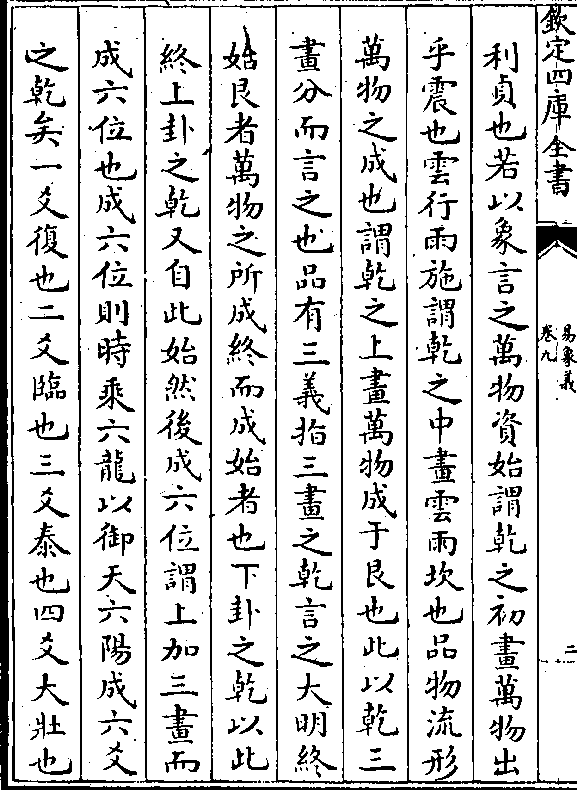 欽定四庫全書
易象義
卷九
二
利貞也若以象言之萬物資始謂乾之初畫萬物出
乎震也雲行雨施謂乾之中畫雲雨坎也品物流形
萬物之成也謂乾之上畫萬物成于艮也此以乾三
畫分而言之也品有三義指三畫之乾言之大明終
始艮者萬物之所成終而成始者也下卦之乾以此
終上卦之乾又自此始然後成六位謂上加三畫而
成六位也成六位則時乘六龍以御天六陽成六爻
之乾矣一爻復也二爻臨也三爻泰也四爻大壯也